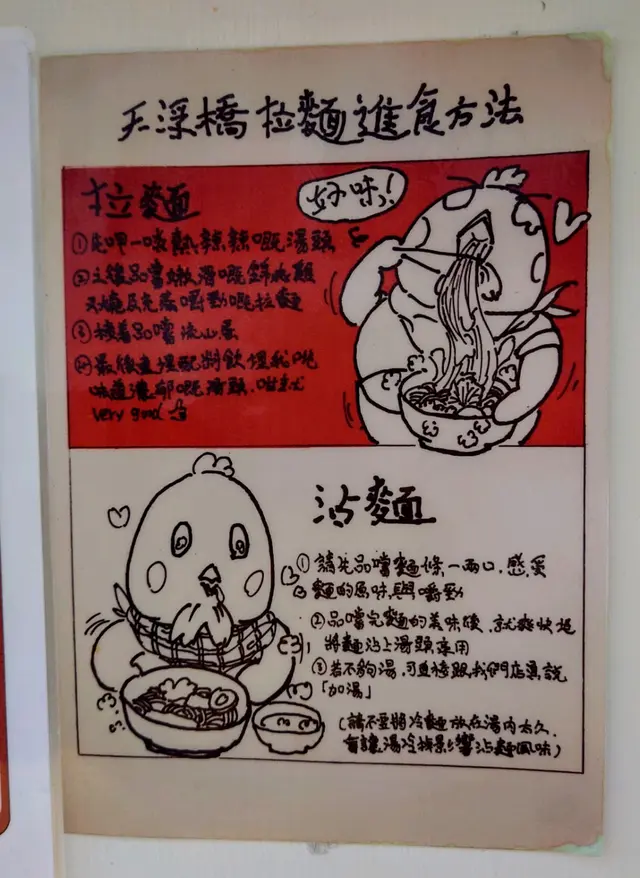 天深橋拉麵進食方法
拉麵
好味!
①先呷一啖熱辣辣嘅湯頭
②之後品嚐嫩滑嘅錦爽雞
叉燒及充滿嚼勁嘅拉麵
③接着品嚐流心蛋
④最後連埋配料飲埋我哋
味道濃郁嘅湯頭,咁就
very good
沾麵
①請先品嚐麵條一兩口,感受
麵的原味與嚼勁
②品嚐完麵的美味後,就爽快地
將麵沾上湯頭享用
③若不夠湯,可直接跟我們店員說
「加湯」
(請不要將冷麵放在湯內太久,
會讓湯冷掉影響沾麵風味)